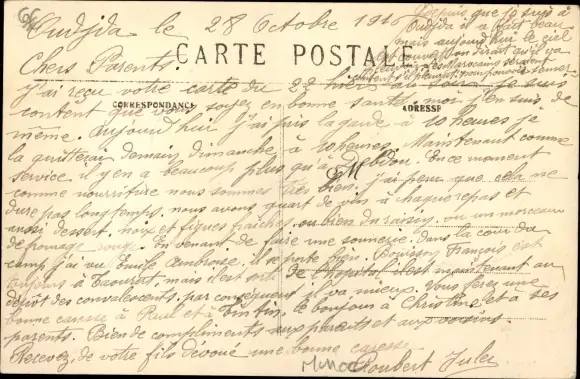 Oudjda le 28 Octobre 191
Depuis que je suis à
Oudjda il a fait beau
mais aujourd'hui le ciel
couvert on dirait qu'il va
pleuvoir les Marocains seraient
contents s'il pleuvait pour pouvoir semer
CARTE POSTALE
Chers Parents.
J'ai reçu votre carte du 22 hier au soir je suis
CORRESPONDANCE
ADRESSE
content que vous soyez en bonne santé, moi j'en suis de
même. Aujourd'hui j'ai pris la garde à 10 heures je
la quitterai demain dimanche à 10 heures. Maintenant comme
service il y en a beaucoup plus qu'à Debdou. En ce moment
comme nourriture nous sommes très bien, j'ai peur que cela ne
dure pas longtemps, nous avons quart de vin à chaque repas et
aussi dessert, noix et figues fraîches, ou bien du raisin, ou un morceau
de fromage rouge. En venant de faire une sonnerie dans la cour du
camp j'ai vu Emile Ambroise, il se porte bien. Bouisson François est
toujours à Taourirt, mais il est sorti de l'hopital il est maintenant au
dépôt des convalescents, par conséquent il va mieux. Vous ferez une
bonne caresse à Paul et à Tintin, le bonjour à Christine et à ses
parents. Bien de compliments aux parents et aux voisins.
Recevez, de votre fils dévoué une bonne caresse
Joubert Jules